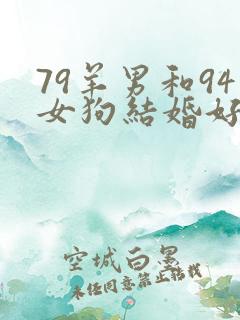 79羊男和94
女狗結婚好
空城白墨
未经同意禁止转载